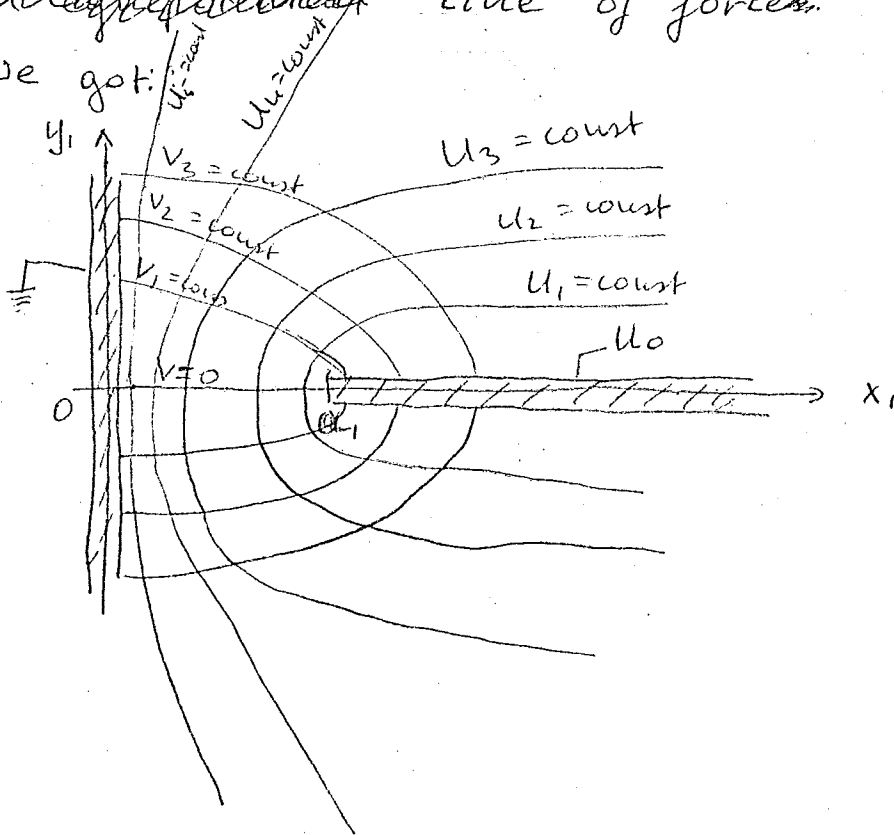 line of forces.
we got:
U₅=const
U₄=const
y₁
V₃ = const
U₃ = const
V₂ = const
U₂ = const
V₁ = cons
U₁ = const
V=0
U₀
0
a₁
x₁